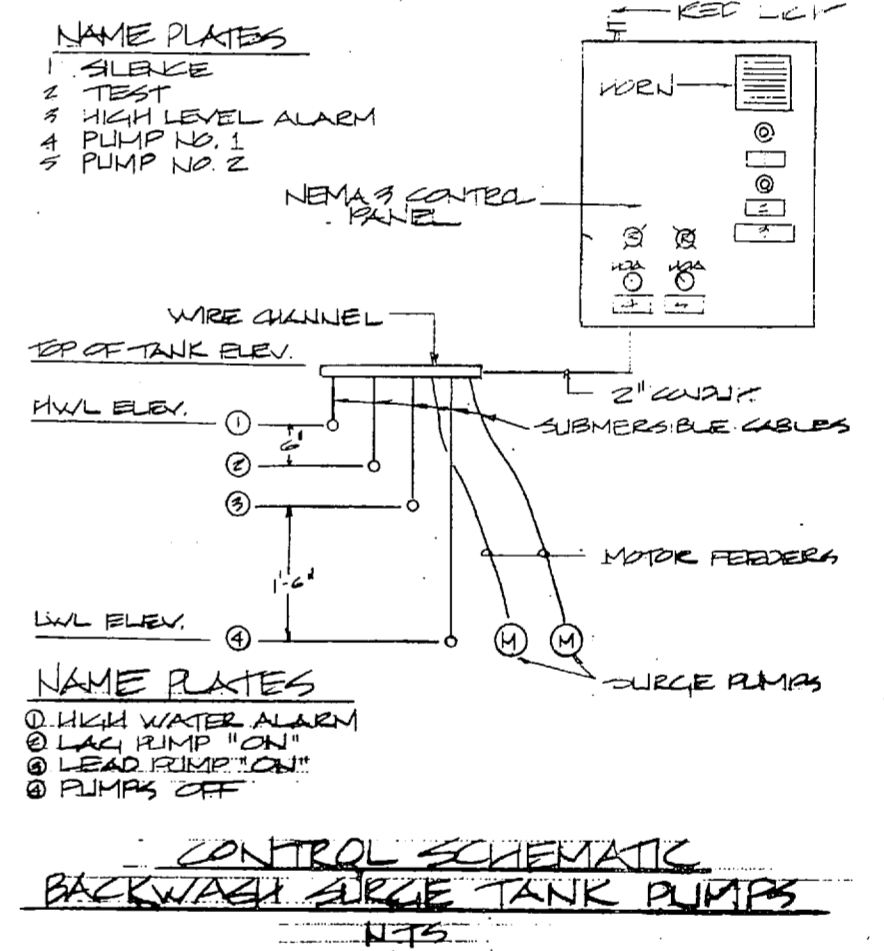 NAME PLATES
1 SILENCE
2 TEST
3 HIGH LEVEL ALARM
4 PUMP NO. 1
5 PUMP NO. 2
RED
HORN
NEMA 3 CONTROL
PANEL
R R
HOA HOA
2
3
WIRE CHANNEL
TOP OF TANK ELEV.
2" CONDUIT
HWL ELEV.
1
6"
SUBMERSIBLE CABLES
2
3
MOTOR FEEDERS
1'-6"
LWL ELEV.
4
M M
SURGE PUMPS
NAME PLATES
1 HIGH WATER ALARM
2 LAG PUMP "ON"
3 LEAD PUMP "ON"
4 PUMPS OFF
CONTROL SCHEMATIC
BACKWASH SURGE TANK PUMPS
NTS